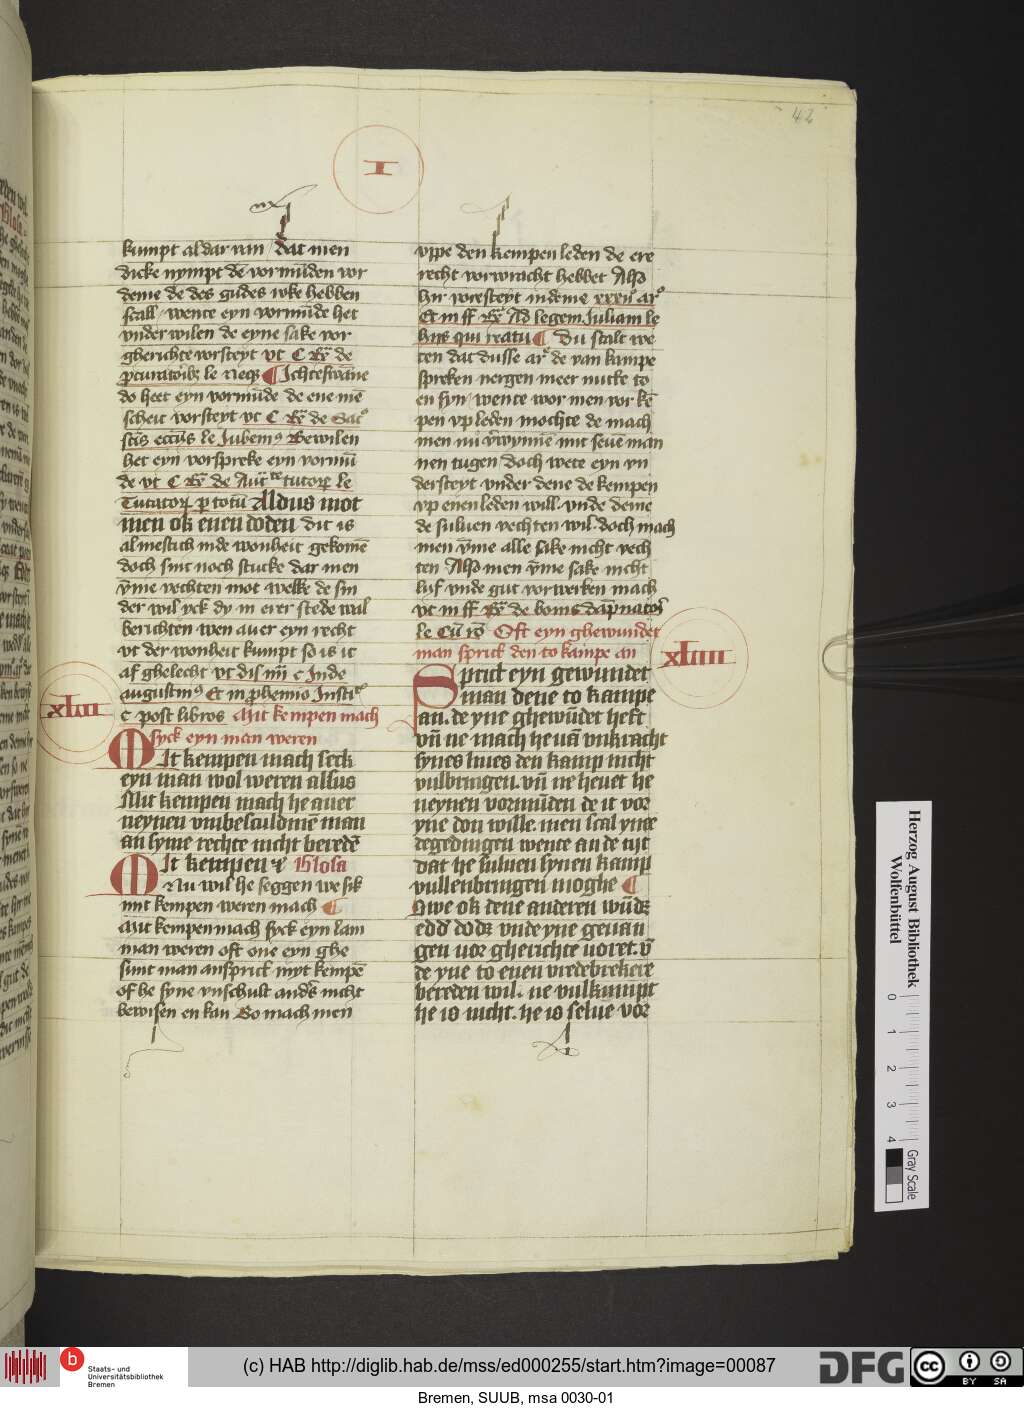 42
I
kumpt aldar van dat men
dicke nympt dē vormūden vor
deme de des gudes wke hebben
scall / wente eyn vormūde het
vnder wilen de eyne sake vor
gherichte vorsteyt vt C Rx de
ꝓcuratoribꝫ le neqꝫ ¶ Ichteswāne
do heet eyn vormūde de ene mē
scheit vorsteyt vt C Rx de Sac
Iubemꝰ Bewilen
het eyn vorspreke eyn vormū
de vt C Rx de Auct tutoꝝ le
Tutatoꝝ p totū Aldus mot
men ok enen doden dit is
almestich inde wonheit gekomē
doch sint noch stucke dar men
v̄me vechten mot welke de sin
der wil yck dy in erer stede wal
berichten wen auer eyn recht
vt der wonheit kumpt so is it
af ghelecht vt dis iiii c Inde
augustinꝰ Et in ꝓhemio Insti
c post libros Mit kempen mach
xliii
syck eyn man weren
MIt kempen mach seck
eyn man wol weren alsus
Mit kempen mach he auer
neynen vmbesculdinē man
an syme rechte nicht beredē
MIt kempen ⁊c Glosa
Nu wil he seggen we sik
mit kempen weren mach ¶
Mit kempen mach syck eyn lam
man weren oft one eyn ghe
sunt man ansprict myt kempē
of he syne vnschult anders nicht
bewisen en kan So mach men
vppe den kempen leden de ere
recht vorwracht hebbet Also
hir vorsteyt indeme xxxiiꝰ arꝰ
Et in ff Rx Ad legem Iuliam le
hijs qui reatu ¶ Du scalt we
ten dat dusse arꝰ de van kampe
spreken nergen meer nutte to
en syn / wente wor men vor kē
pen vp leden mochte de mach
men nu v̄wynnē mit seuē man
nen tugen / doch wete eyn vn
dersteyt vnder dene de kempen
vp enen leden will. vnde deme
de suluen vechten wil. doch mach
men v̄me alle sake nicht vech
ten Also men v̄me sake nicht
lyf vnde gut vorwerken mach
vt in ff Rx de bonis dāpnatoꝝ
le Cū ro Oft eyn ghewundet
man sprict den to kampe an
xliiii
Sprict eyn gewundet
man dene to kampe
an. de yne ghewūdet heft
vn̄ ne mach he vā vnkracht
synes liues den kamp nicht
vulbringen. vn̄ ne heuet he
neynen vormūden de it vor
yne don wille. men scal yme
degedingen wente an de tijt
dat he suluen synen kamp
vullenbringen moghe ¶
Swe ok dene anderen wūdꝫ
edd dodꝫ vnde yne geuan
gen vor gherichte voret. v̄
de yne to enen vredebrekere
bereden wil. ne vulkumpt
he is nicht. he is selue vor
Herzog August Bibliothek
Wolfenbüttel
0 1 2 3 4
Gray Scale
b
Staats- und
Universitätsbibliothek
Bremen
(c) HAB http://diglib.hab.de/mss/ed000255/start.htm?image=00087
DFG
cc BY SA
Bremen, SUUB, msa 0030-01